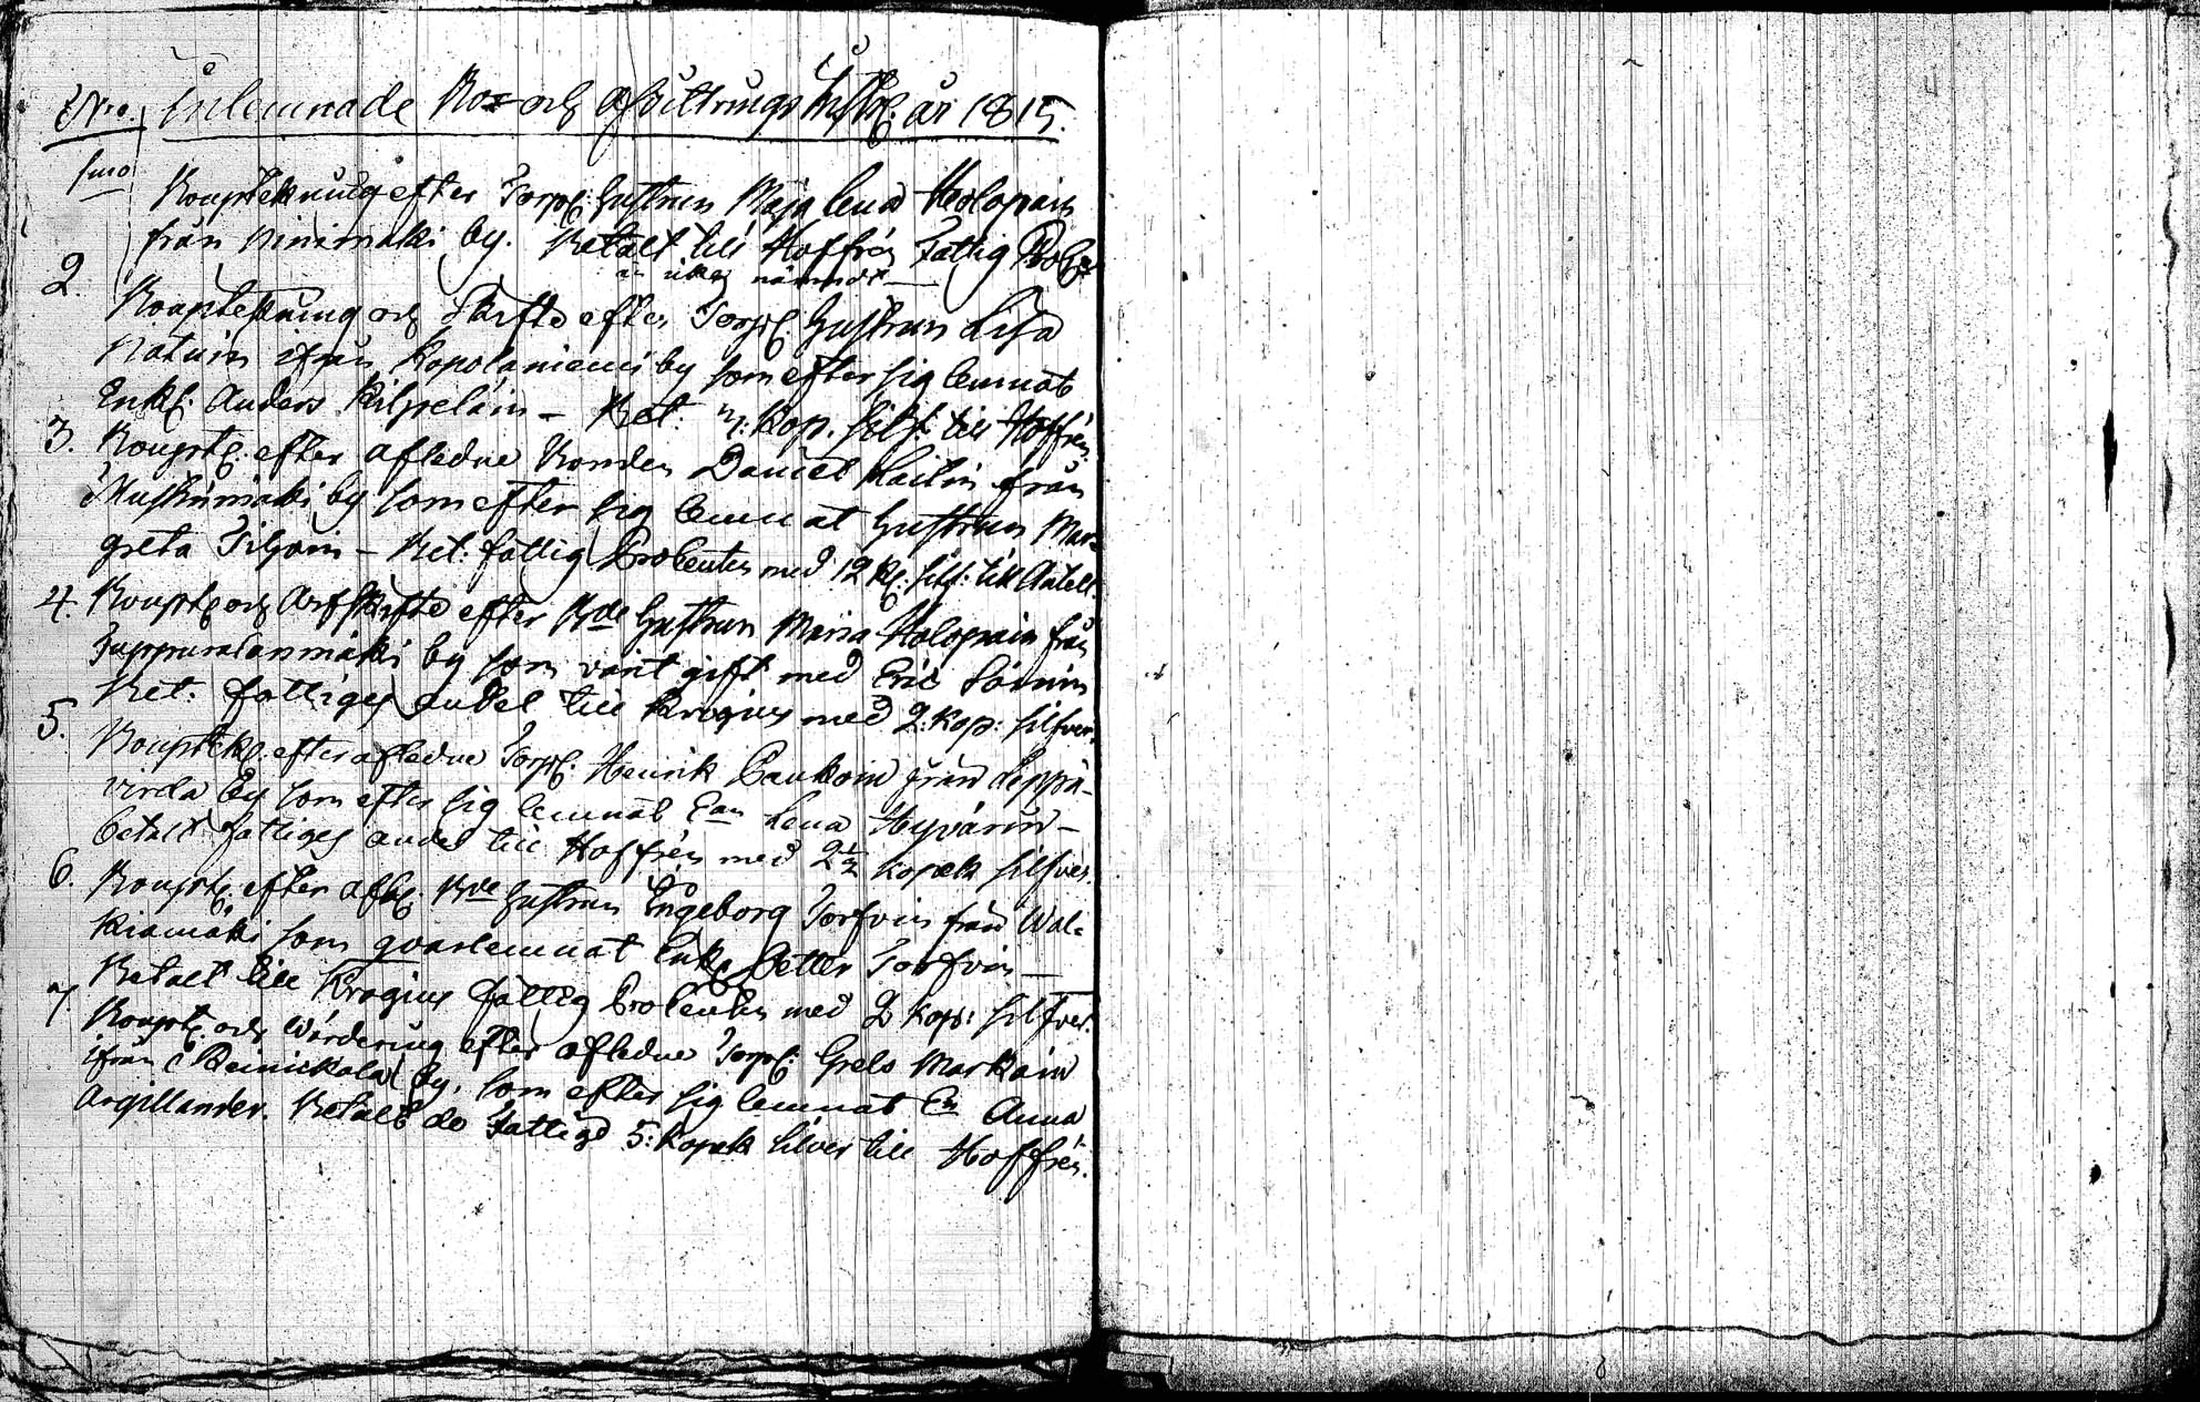 Nro. Inlemnade Bo- och afvittrings Instr. år 1815.
1mo Bouptekning efter Torp: Hustrun Maja Lena Holopain
från Ninimäki by. Betalt till Hoffrén Fattig Proc
är icke nämndt
2. Bouptekning och Skifte efter Torp: Hustrun Lisa
ifrån Kopolaniemi by som efter sig lemnat
Enkl: Anders Kilpeläin – Bet: Kop. silf: till Hoffrén.
3. Boupt: efter afledne Bonden Daniel Laitin från
Mustinmäki by som efter sig lemnat Hustrun Mar=
greta – Bet: fattig Procenten med 12 K: silf: till Antell.
4. Boupt: och Arfskifte efter Bde Hustrun Maria Holopain från
by som varit gift med Eric
Bet: fattiges andel till Krogius med 2: Kop: silfver.
5. Bouptek: efter afledne Torp: Henrik Paukoin från Leppä-
virda by som efter sig lemnat Lena Hyvärin –
betalt fattiges andel till Hoffrén med 2½ kopek silfver.
6. Boupt: efter afl: Bde Hustrun Ingeborg Torfvin från Wal=
kiamäki som qvarlemnat Enk: Petter Torfvin —
Betalt till Krogius fattig Procenten med 2 Kop: silfver.
7. Boupt: och Wärdering efter afledne Torp: Grels Markain
ifrån Reinickala by, som efter sig lemnat Anna
Argillander. Betalt de Fattige 5: Kopek silver till Hoffrén.